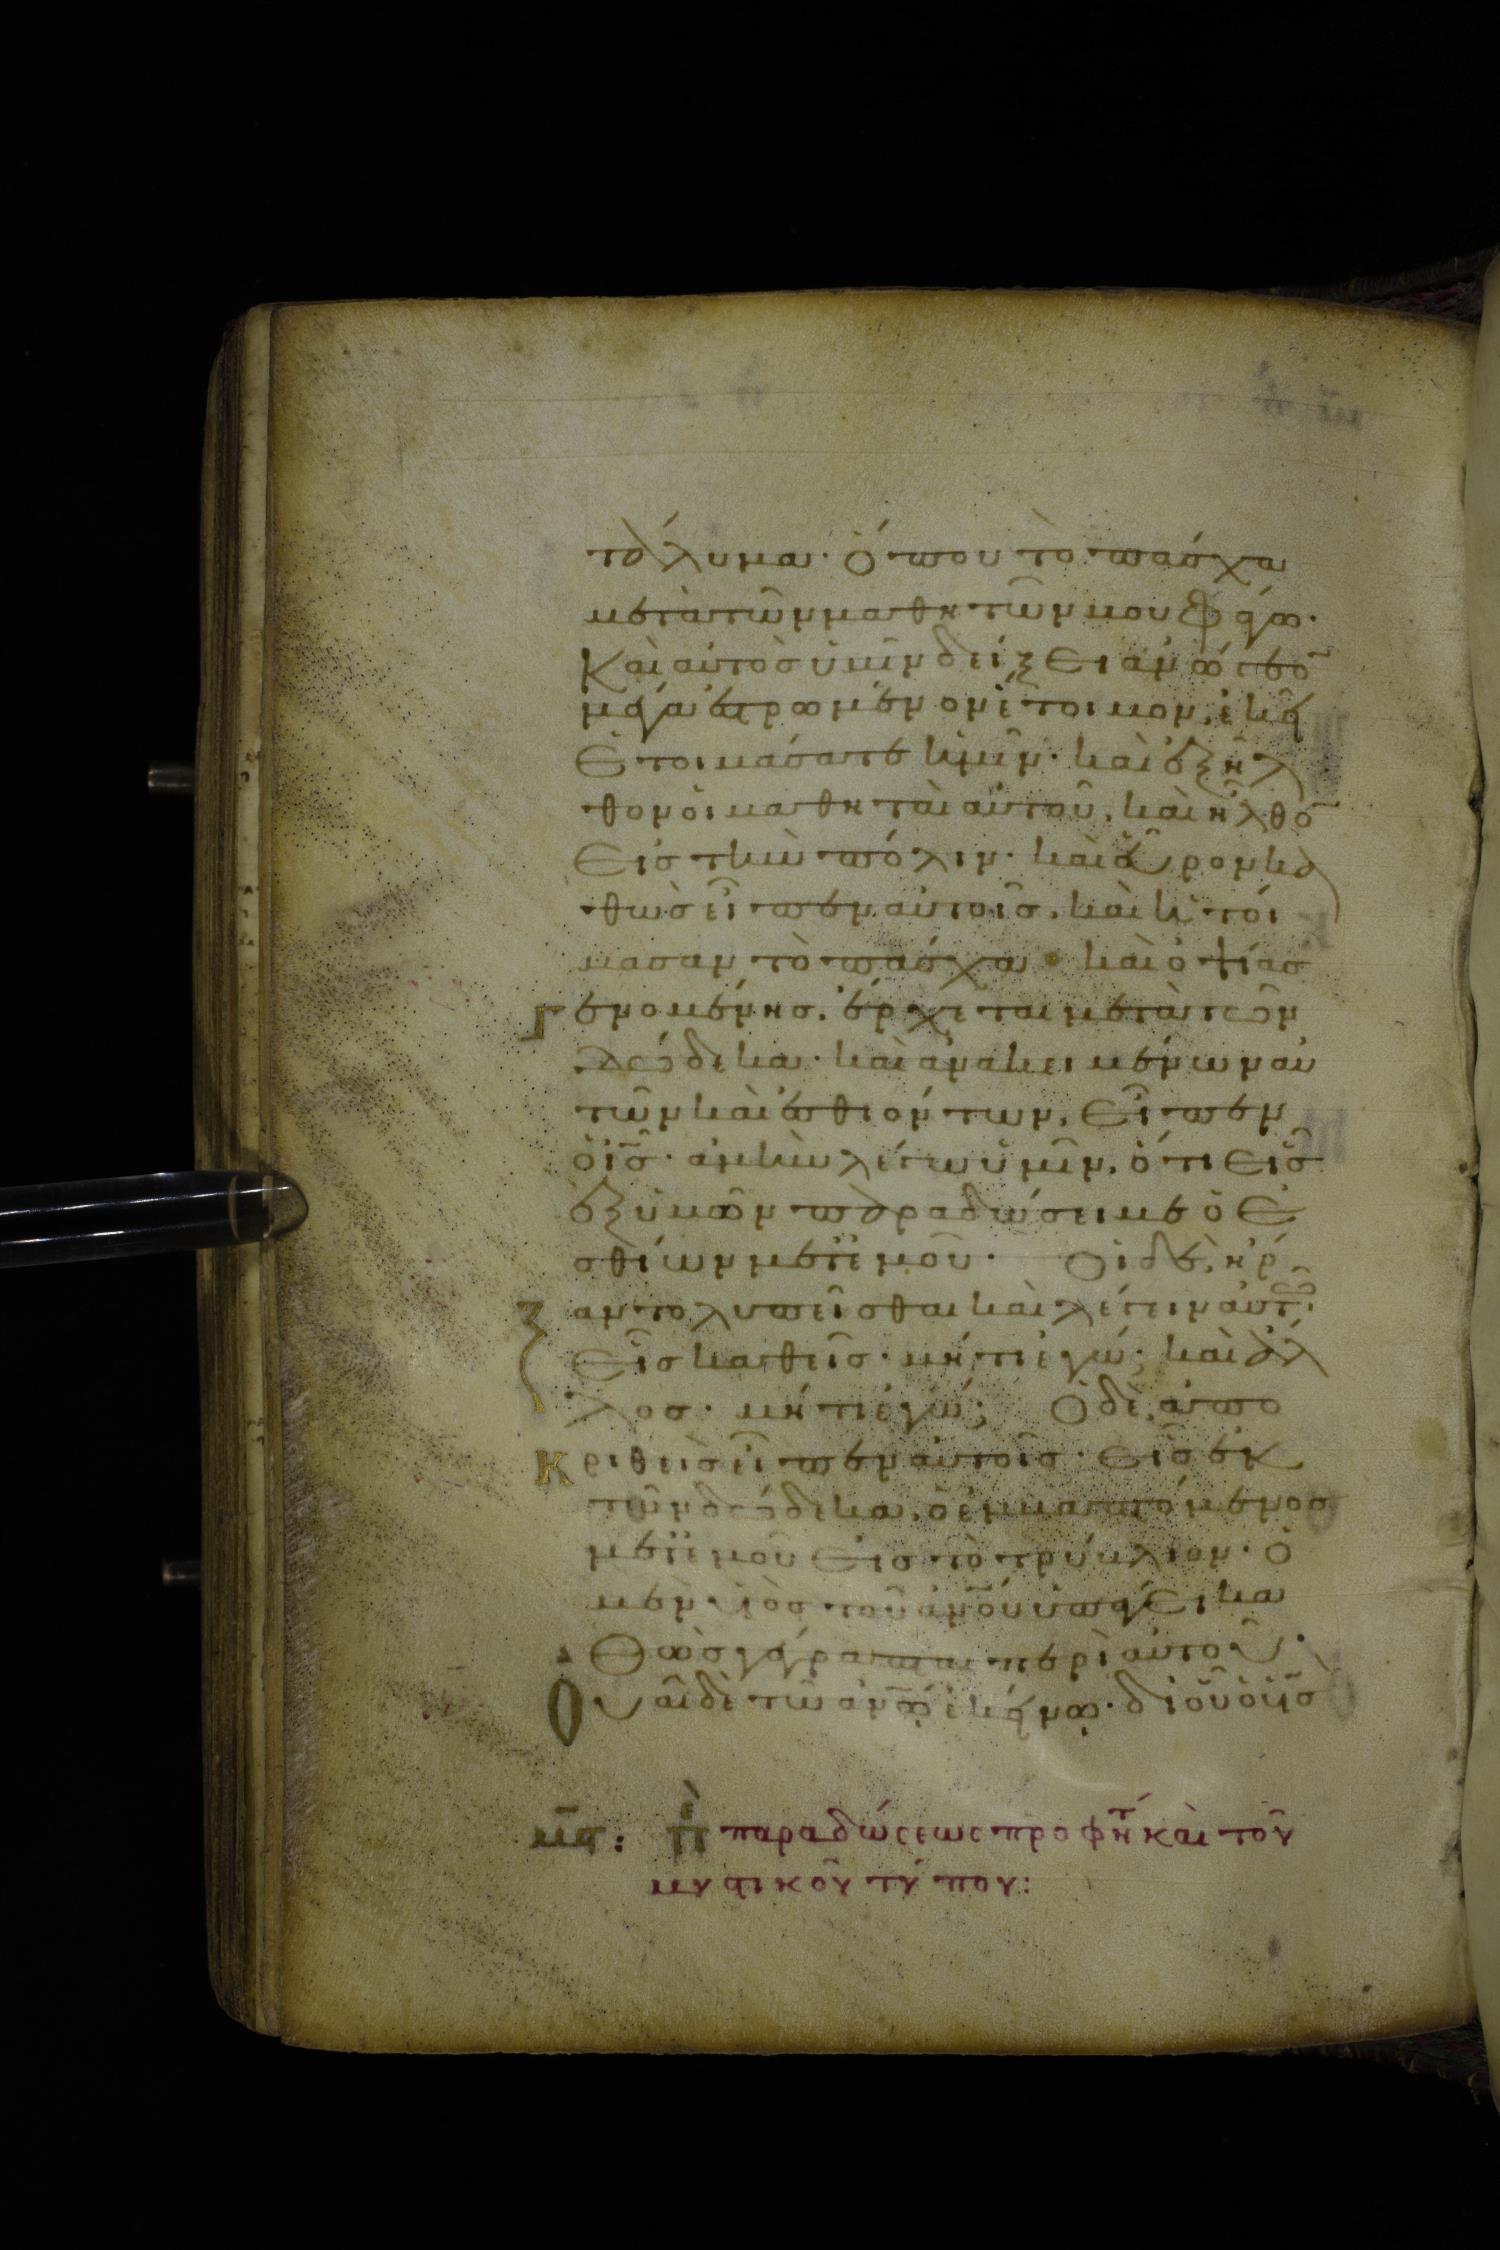 τάλυμα· ὅπου τὸ πάσχα
μετὰ τῶν μαθητῶν μου φάγω·
Καὶ αὐτὸς ὑμῖν δείξει ἀνώγεο̄
μέγα ἐστρωμένον ἕτοιμον, ἐκεῖ
Ἑτοιμάσατε ἡμῖν· καὶ ἐξῆλ
θον οἱ μαθηταὶ αὐτοῦ, καὶ ἦλθο̄
Εἰς τὴν πόλιν· καὶ εὗρον κα
θὼς εἶπεν αὐτοῖς, καὶ ἡτοί
μασαν τὸ πάσχα· καὶ ὀψίας
γενομένης, ἔρχεται μετὰ τῶν
δώδεκα· καὶ ἀνακειμένων αὐ
τῶν καὶ ἐσθιόντων, εἶπεν
ὁ ις̄· ἀμὴν λέγω ὑμῖν, ὅτι εἷς
ἐξ ὑμῶν παραδώσει με ὁ ἐ
σθίων μετ' ἐμοῦ· Οἱ δὲ, ἤρ
ξαντο λυπεῖσθαι καὶ λέγειν αὐτῶ·
Εἷς καθεῖς· μή τι ἐγώ; καὶ ἄλ
λος· μή τι ἐγώ; Ὁ δὲ, ἀπο
κριθεὶς εἶπεν αὐτοῖς· εἷς ἐκ
τῶν δώδεκα, ὁ ἐμβαπτόμενος
μετ' ἐμοῦ εἰς τὸ τρύβλιον· ὁ
μὲν υἱὸς τοῦ ἀν̄ου ὑπάγει κα
Θὼς γέγραπται περὶ αὐτοῦ·
Οὐαὶ δὲ τῶ ἀν̄ω ἐκείνω· δι' οὗ ὁ υς̄
μς̄: πὲ παραδώσεως προφητ καὶ τοῦ
μυστικοῦ τύπου: